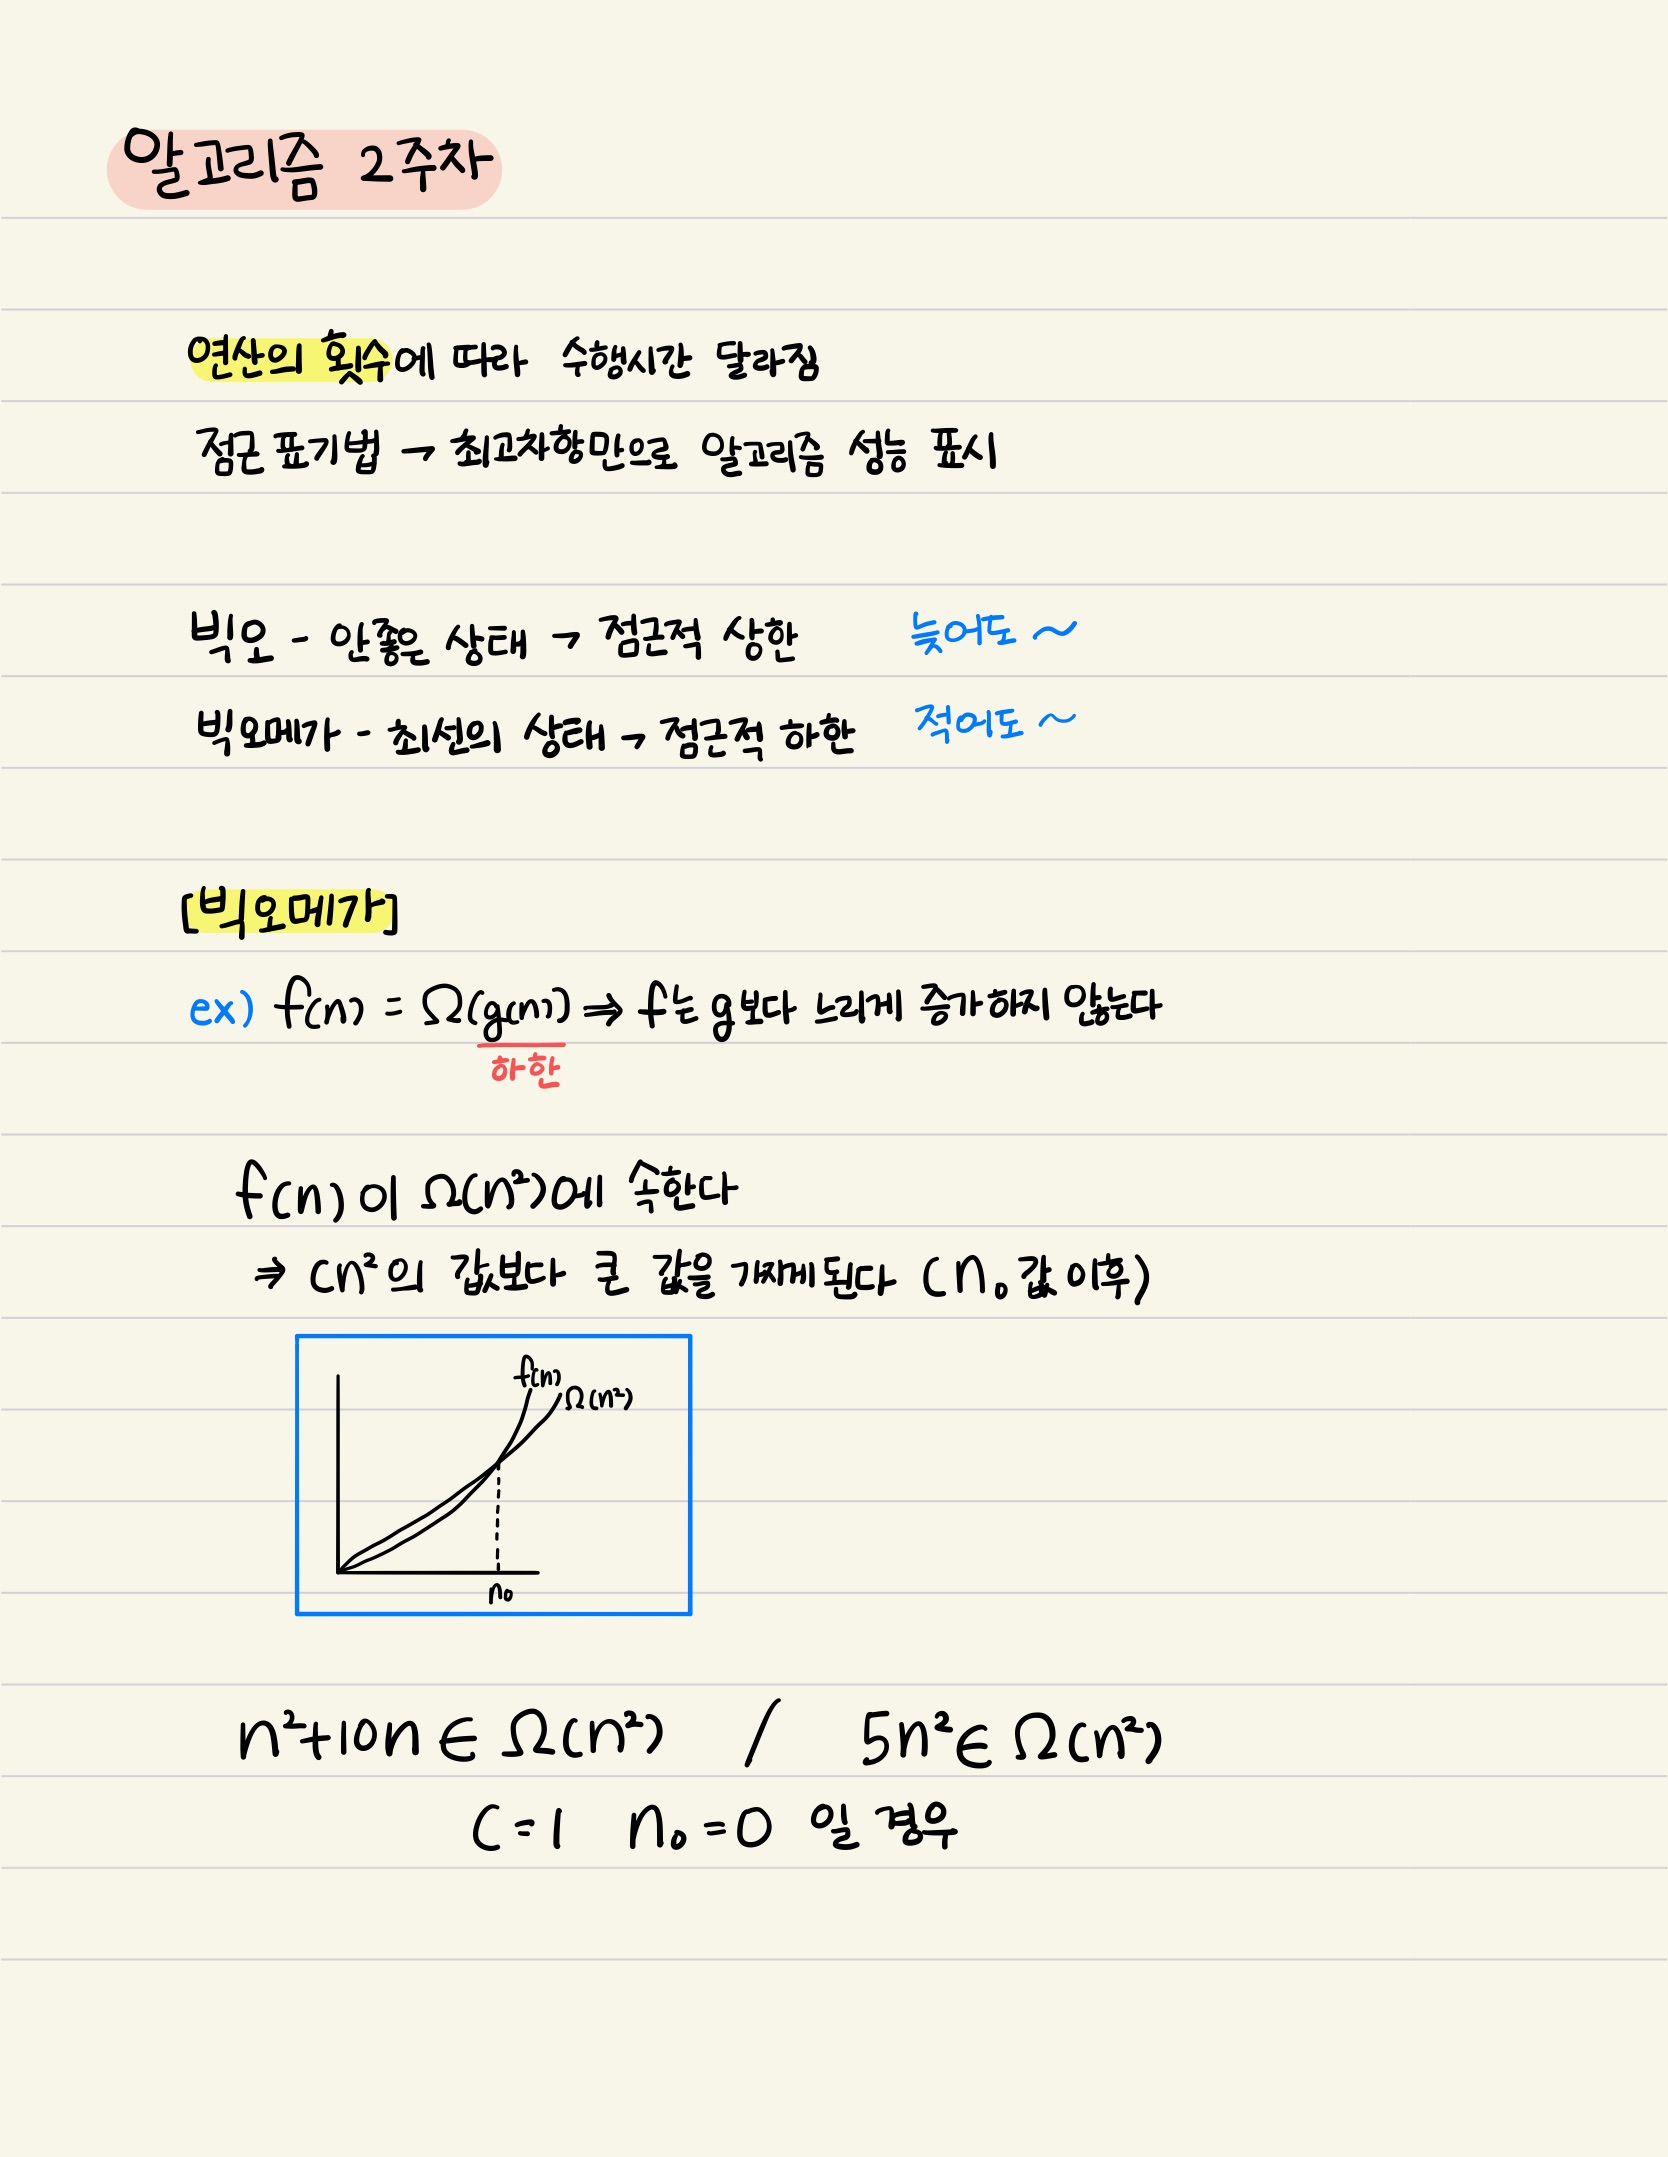 알고리즘 2주차
연산의 횟수에 따라 수행시간 달라짐
점근 표기법 → 최고차항만으로 알고리즘 성능 표시
빅오 - 안좋은 상태 → 점근적 상한 늦어도 ~
빅오메가 - 최선의 상태 → 점근적 하한 적어도 ~
[빅오메가]
ex) f(n) = Ω(g(n)) ⇒ f는 g보다 느리게 증가하지 않는다
하한
f(n)이 Ω(n²)에 속한다
⇒ cn²의 값보다 큰 값을 가지게된다 (n₀값 이후)
f(n)
Ω(n²)
n₀
n²+10n ∈ Ω(n²) / 5n² ∈ Ω(n²)
C=1 n₀=0 일 경우